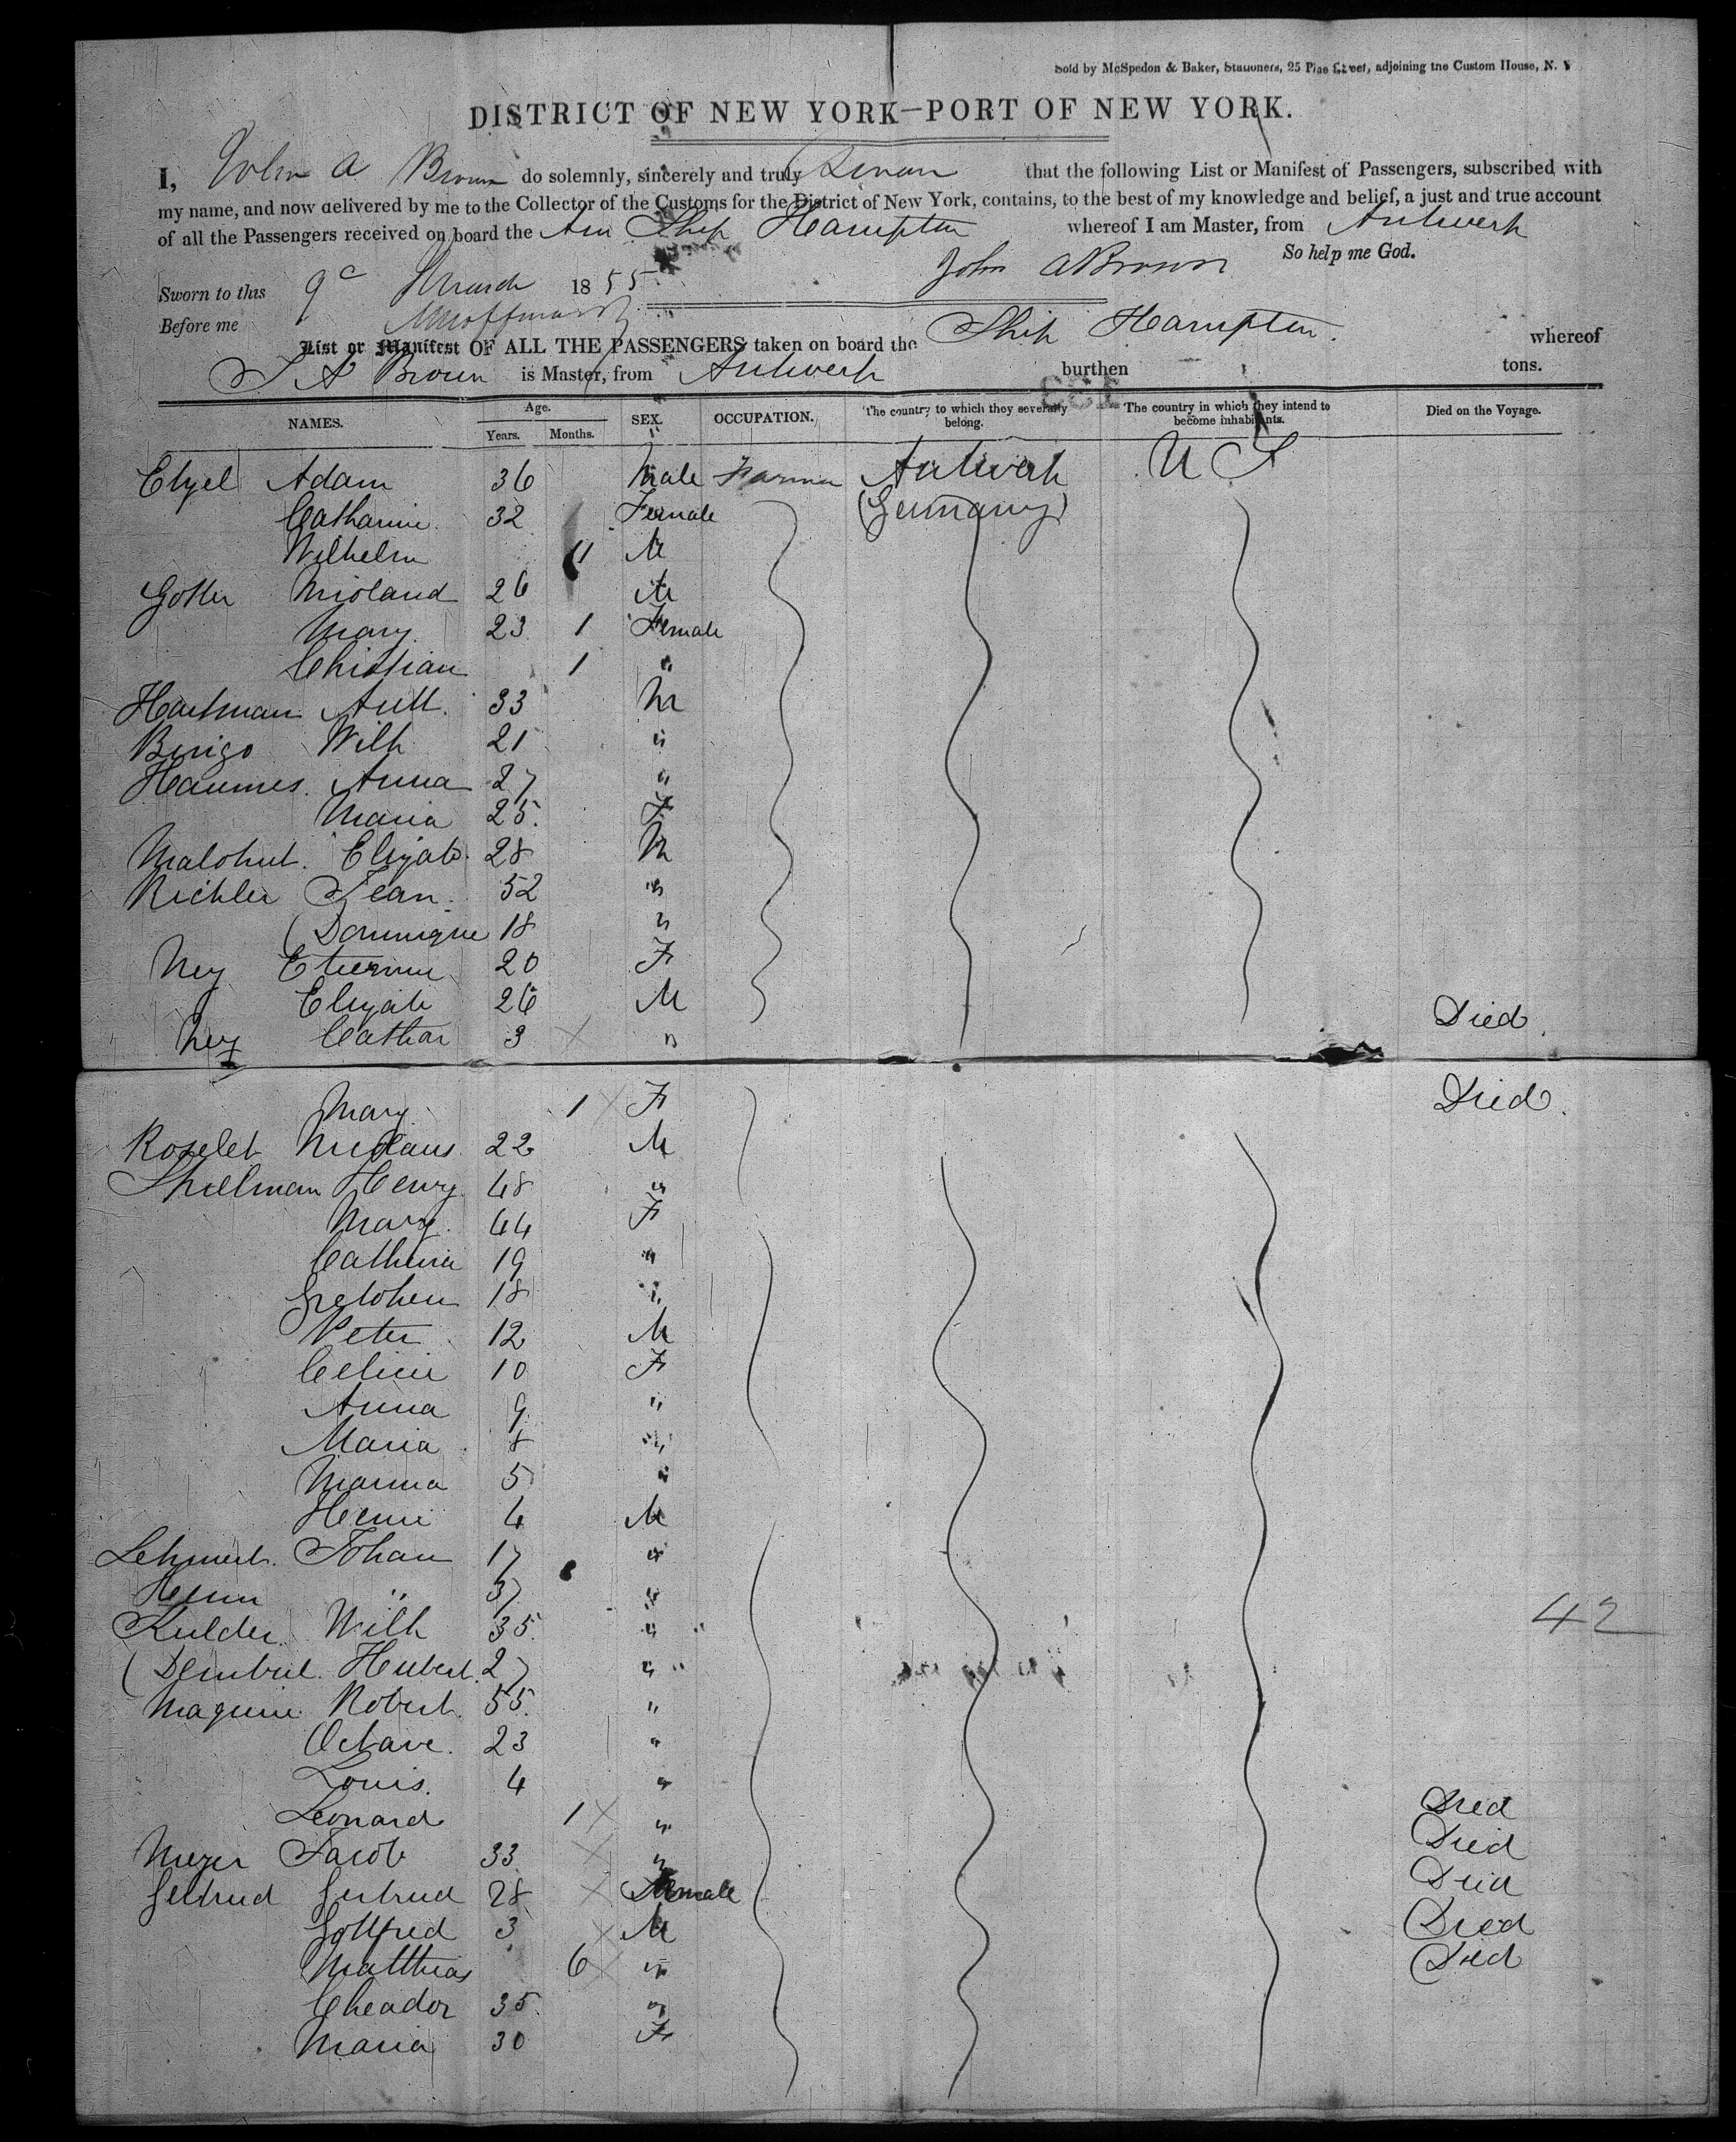 Sold by McSpedon & Baker, Stationers, 25 Pine Street, adjoining the Custom House, N. Y
DISTRICT OF NEW YORK—PORT OF NEW YORK.
I, John A Brown do solemnly, sincerely and truly Swear that the following List or Manifest of Passengers, subscribed with
my name, and now delivered by me to the Collector of the Customs for the District of New York, contains, to the best of my knowledge and belief, a just and true account
of all the Passengers received on board the Am Ship Hampton whereof I am Master, from Antwerp
So help me God.
John A Brown
Sworn to this 9 March 1855
Before me
List or Manifest OF ALL THE PASSENGERS taken on board the Ship Hampton. whereof
J A Brown is Master, from Antwerp burthen tons.
NAMES. Age. Years. Months. SEX. OCCUPATION. The country to which they severally belong. The country in which they intend to become inhabitants. Died on the Voyage.
Etzel Adam 36 Male Farmer Antwerp U S
Catharine 32 Female (Germany)
Wilhelm 11 M
26 M
Mary 23 1 Female
Christian 1 "
Hartman Anth. 33 M
Wilh 21 "
Hammes Anna 27 "
Maria 25. F
Elizab. 28 M
Richler Jean. 52 "
Dominique 18 "
Ney Etienne 20 F
Elizab 26 M
Ney Cathar 3 X " Died.
Mary 1 X F Died.
Roselet Nicolaus 22 M
Henry 48 "
Mary. 44 F
Catherina 19 "
Gretchen 18 "
Peter 12 M
Celicie 10 F
Anna 9 "
Maria 8 "
Marina 5 "
Henri 4 M
Johan 17 "
" 37 "
Kulder Wilh 35. " 42
Hubert. 27 "
Robert. 55. "
Octave. 23 "
Louis. 4 "
Leonard 1 X " Died
Meyer Jacob 33 X " Died
Gertrud Gertrud 28 X Female Died
Gottfred 3 X M Died
Matthias 6 X " Died
35. "
Maria 30 F